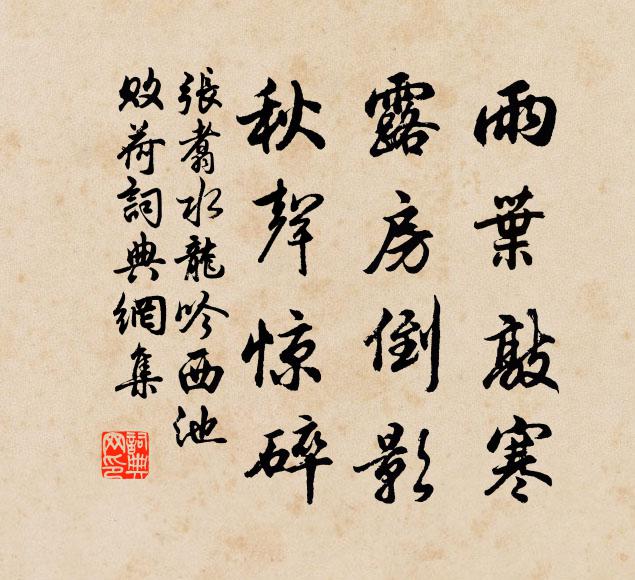 雨葉敲寒
露房倒影
秋聲惊碎
張翥水龍吟西池
敗荷詞典網集
詞典网印